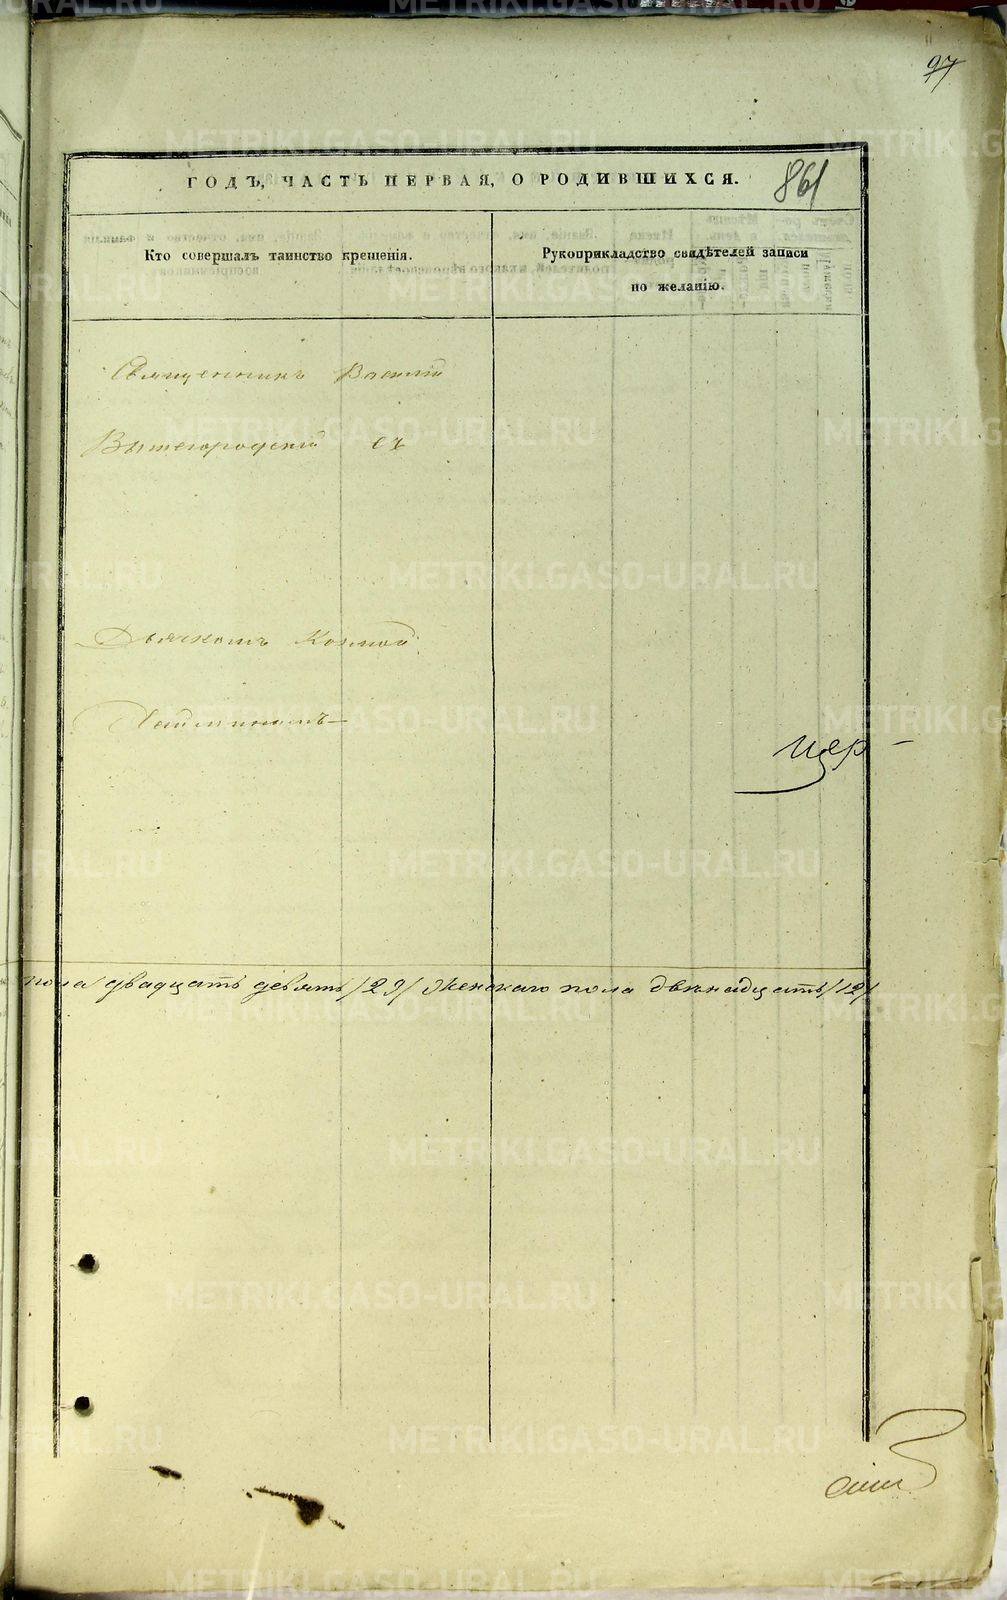 97
ГОДЪ, ЧАСТЬ ПЕРВАЯ, О РОДИВШИХСЯ.
861
Кто совершалъ таинство крещенія.
Рукоприкладство свидѣтелей записи
по желанію.
Священникъ Василій
Вышегородскій съ
Дьячкомъ Козмой
цер-
пола двадцать девять /29/ женскаго пола двѣнадцать /12/
METRIKI.GASO-URAL.RU